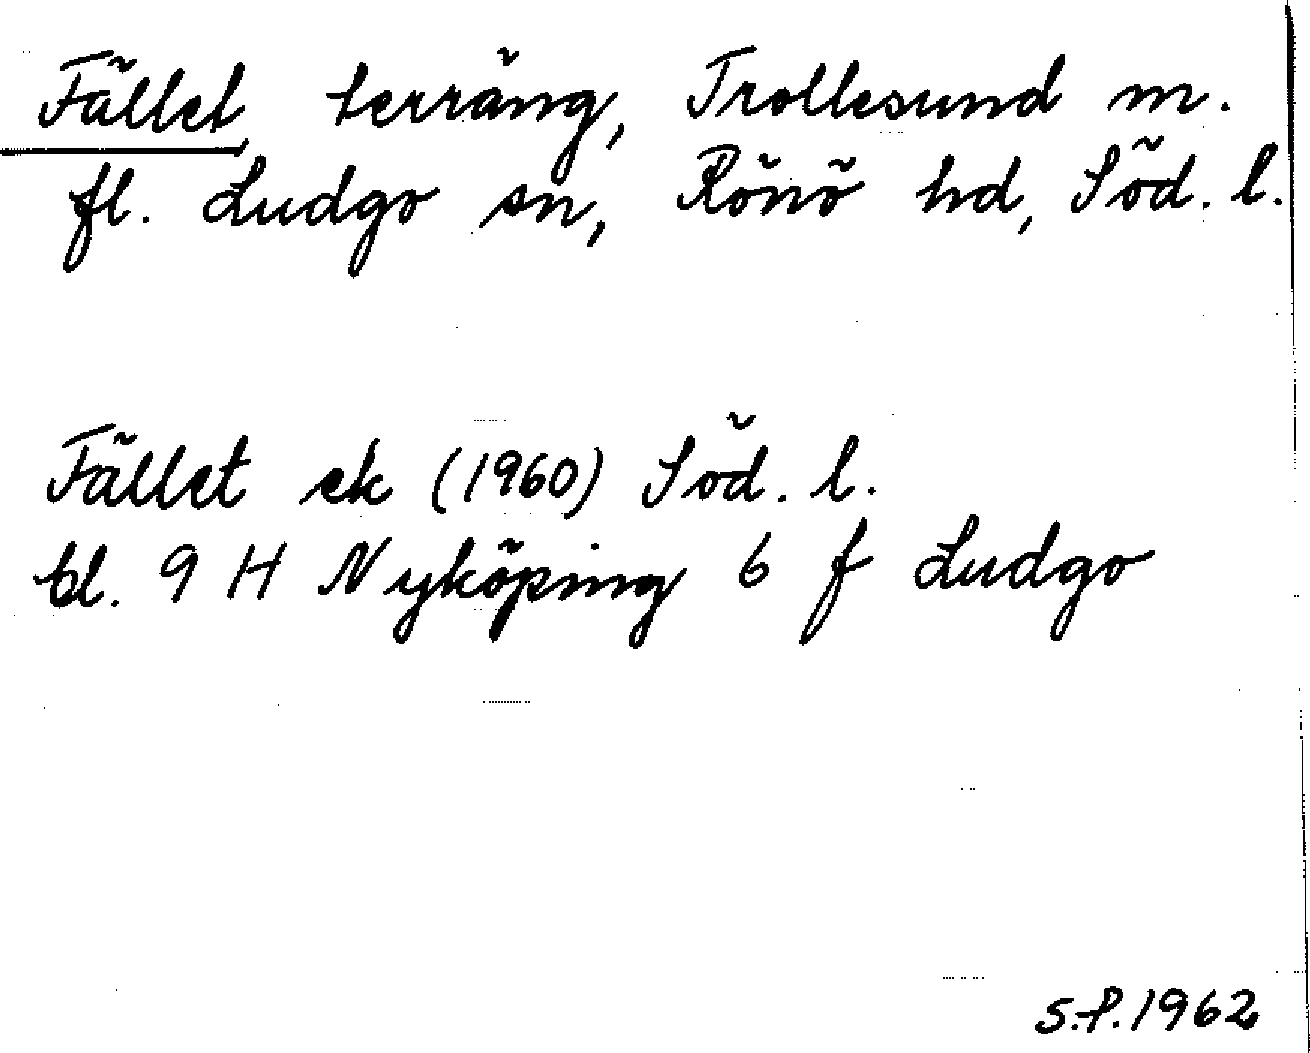 Fället, terräng, Trollesund m.
fl. Ludgo sn, Rönö hd, Söd. l.
Fället ek (1960) Söd. l.
bl. 9 H Nyköping 6 f Ludgo
S.P. 1962